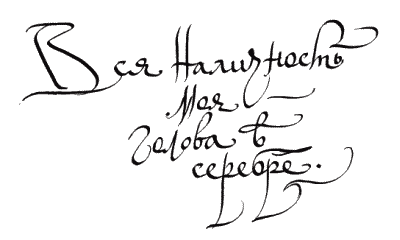 Вся Наличность
Моя
Голова в
серебре.